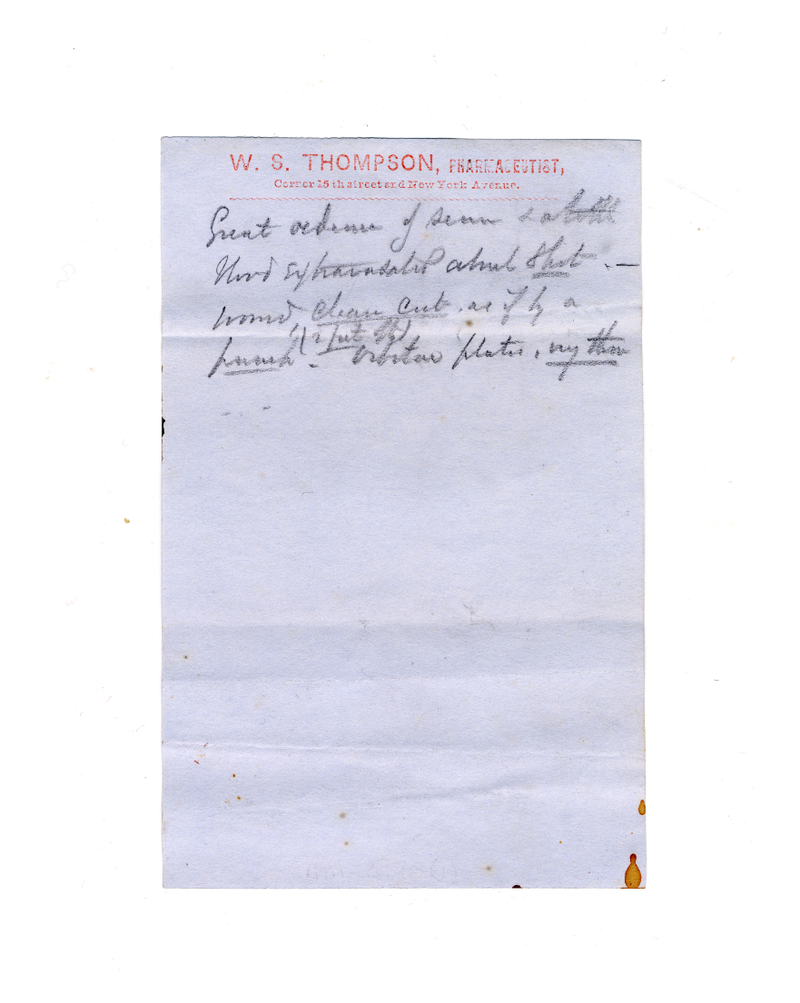 W. S. THOMPSON, PHARMACEUTIST,
Corner 15th street and New York Avenue.
Great oedema of serum & a little
blood extravasated about Shot —
wound, clean cut, as if by a
(2 feet off)
punch. Orbitar plates, very thin